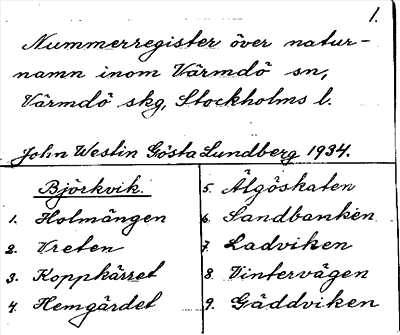 1.
Nummerregister över natur-
namn inom Värmdö sn,
Värmdö skg, Stockholms l.
John Westin Gösta Lundberg 1934.
Björkvik.
1. Holmängen
2. Vreten
3. Koppkärret
4. Hemgärdet
5. Älgöskaten
6. Sandbanken
7. Ladviken
8. Vintervägen
9. Gäddviken